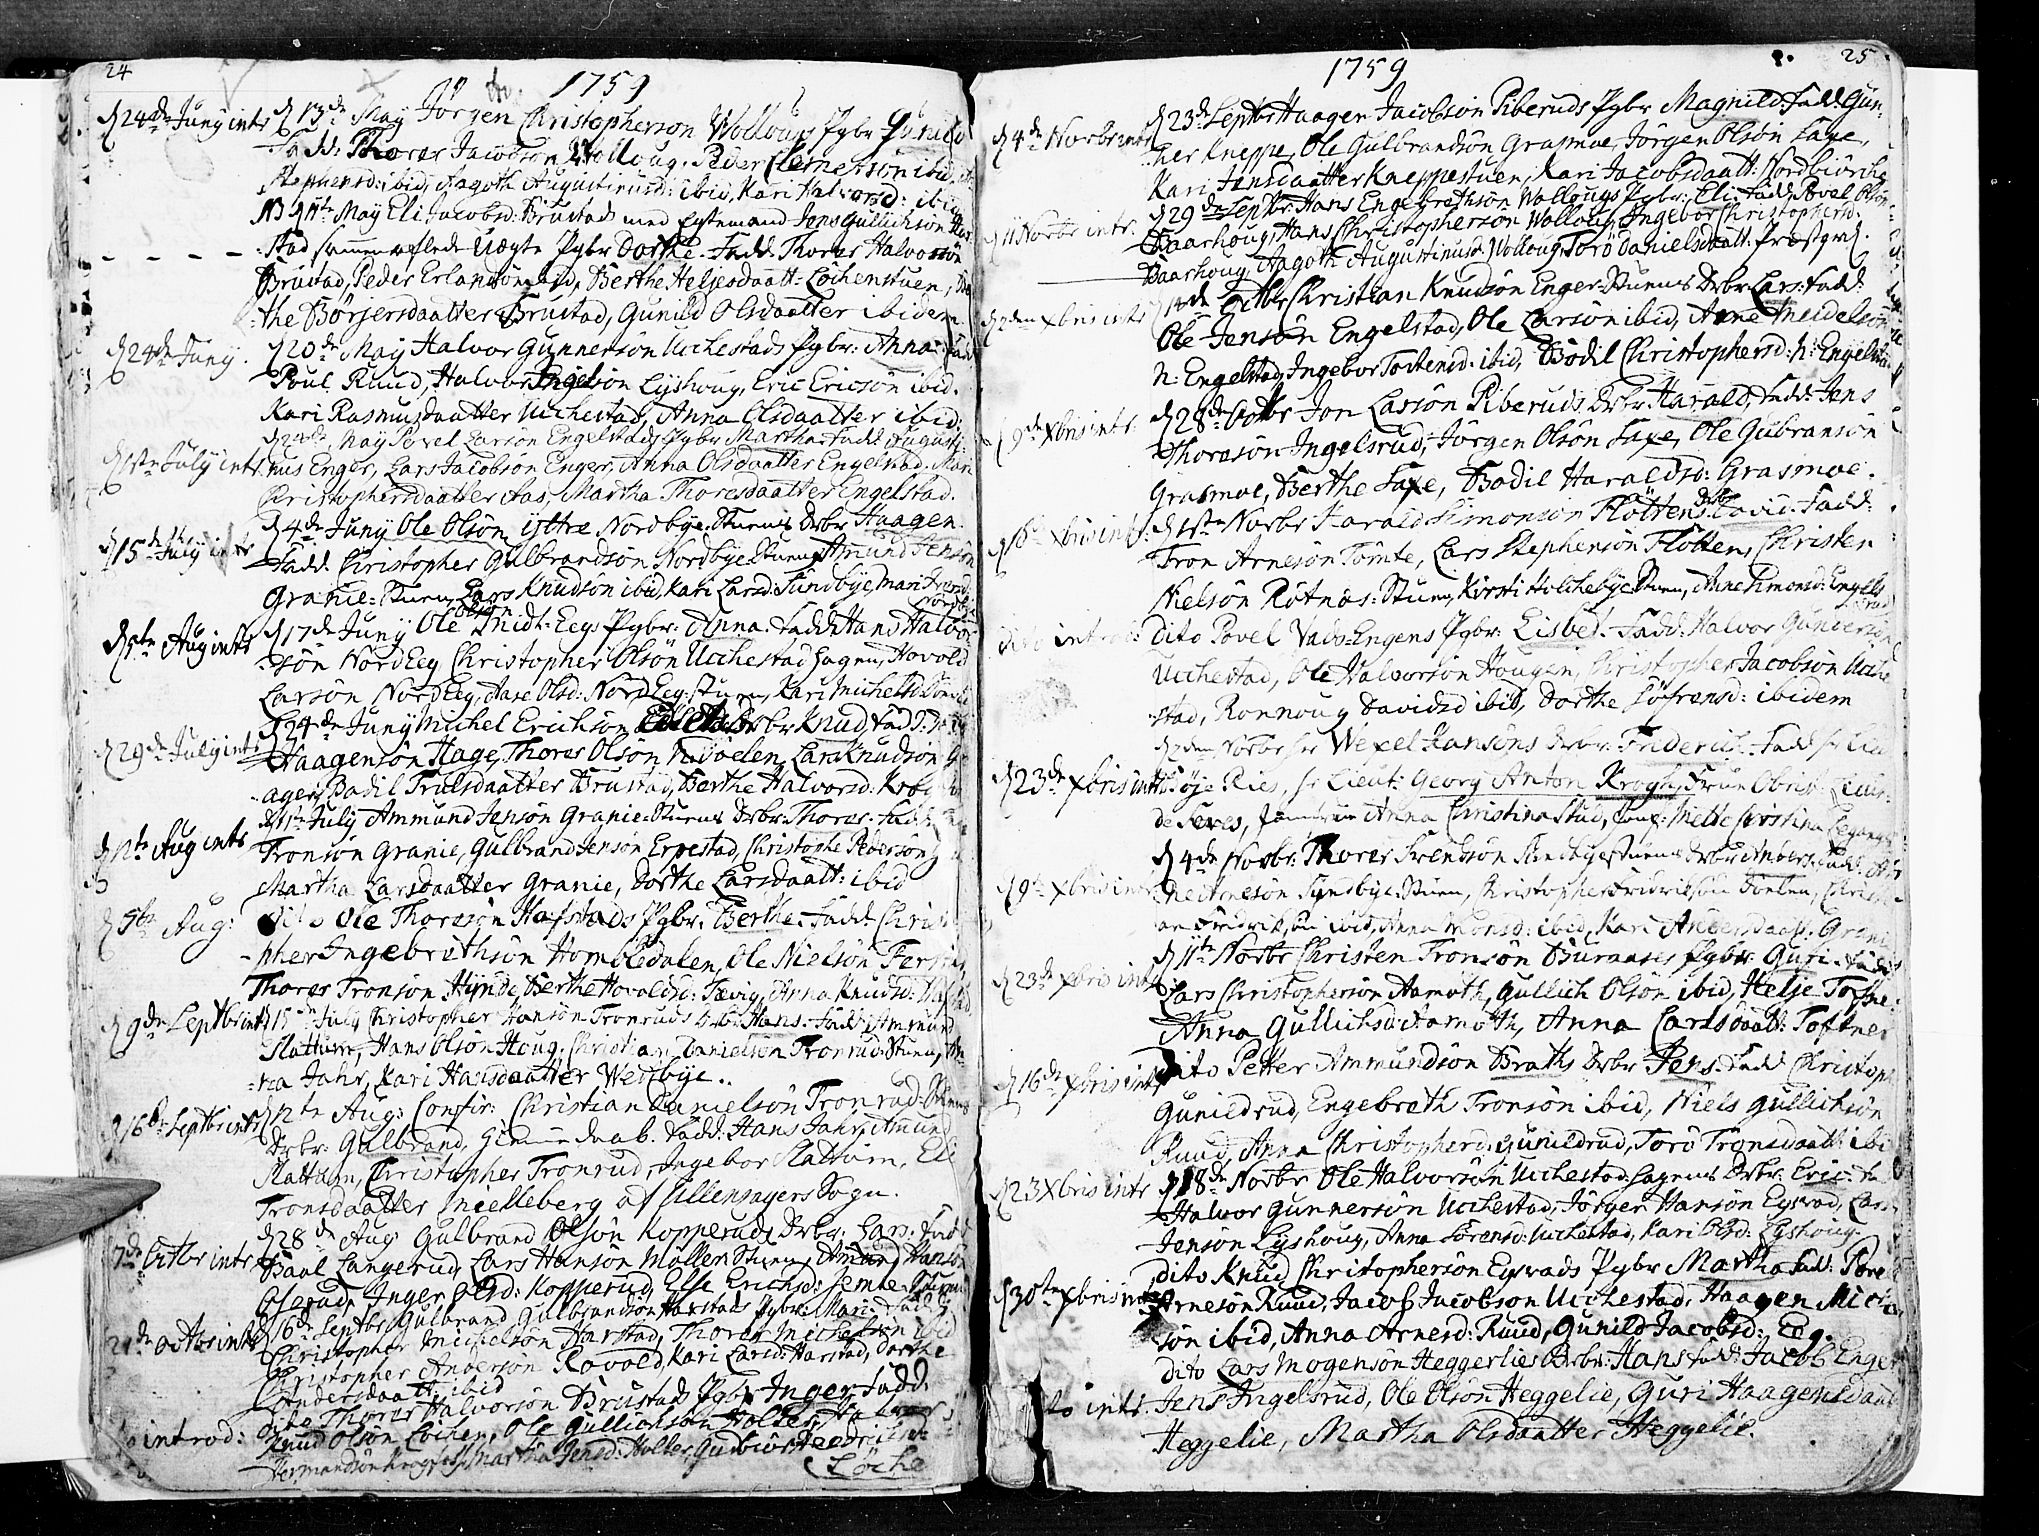 24
1759
d 24de Juny intr
d 13de May Jörgen Christopherson Wolloug Pgbr Gunild
Fadd: Thorer Jacobson Wolloug, Peder Clemetsön ibid,
Stephensd: ibid, Aagoth Augustinusd: ibid, Kari Halvorsd: ibid
May Eli Jacobsd: Brustad med Egtemand Jens Gullichsön
stad sammenaflede Uægte Pgbr Dorthe. Fadd: Thorer Halvorsön
Brustad, Peder Erlandsön ibid, Berthe Heljesdaatt: Löchenstuen,
the Börjersdaatter Brustad, Gunild Olsdaatter ibidem
d 24de Juny.
d 20de May Halvor Gunnersön Uchestads Pgbr: Anna Fadd
Poul Ruud, Halvor Engelsön Lyshoug, Eric Ericsön ibid.
Kari Rasmusdaatter Uchestad, Anna Olsdaatter ibid:
July intr.
May Povel Larsön Engelstads Pgbr Martha. Fadd Augusti
nus Enger, Lars Jacobsön Enger, Anna Olsdaatter Engelstad,
Christophersdaatter Aas, Martha Thoresdaatter Engelstad.
d 15de July intr
d 4de Juny Ole Olsön ystre Nordbye Stuens Drbr Haagen
Fadd Christopher Gulbrandsön Nordbye Stuen, Amund Jensön
Granie-Stuen, Lars Knudsön ibid, Kari Larsd: Sundbye, Mari
Aug intr
d 17de Juny Ole Olsön Eegs Pgbr: Anna. Fadd Hans Halvor
sön Nord Eeg Christopher Olsön Uchestad hagen, Hovold
Larsön Nord Eeg, Aase Olsd: Nord Eeg stuen, Kari Michelsd
d 29de July intr
d 24de Juny Michel Erichsön Drbr Knud Fadd:
Haagensön Hage, Thorer Olsön, Lars Knudsön
ager, Bodil Trulsdaatter Brustad, Berthe Halvorsd:
d 12te Aug intr
July Ammund Jensön Granie-Stuens Drbr: Thorer. Fadd
Tronsön Granie, Gulbrand Jensön Erpestad, Christophe Pedersön
Martha Larsdaatter Granie, Dorthe Larsdaatt: ibid
d 5te Aug:
Dito Ole Thoresön Hafstads Pgbr: Berthe. Fadd Christo
pher Ingebrethsön Hombledalen, Ole Nielsön
Thorer Tronsön Hynde, Berthe Hovoldsd:, Anna Knudsd:
d 9de Septbr intr
d 15de July Christopher Hansön Tronruds Drbr Hans. Fadd: Ammund
Slattum, Hans Olsön Houg, Christian Danielsön Tronrud Stuen,
na Jahr, Kari Hansdaatter Wedbye.
d 16de Septbr intr
d 12te Aug: Confir: Christian Danielsön Tronrud-Stuens
Drbr: Gulbrand, hiemme daab. Fadd: Hans Jahr, Amund
Slattum, Christopher Tronrud, Ingebor Slattum, Eli
Tronsdaatter Mielleberg af Ullensagers Sogn.
7de Octbr intr
d 28de Aug: Gulbrand Olsön Kopperuds Drbr: Lars: Fadd
Paal Langerud, Lars Hansön Möller Stuen, Amund Hansön
Aaserud, Inger Olsd: Kopperud, Else Erichsd:
21de Octbr intr
d 16de Septbr Gulbrand Gulbrandsön Harstads Pgbr: Mari: Fadd
Christopher Michelsön Harstad, Thorer Michelsön ibid
Christopher Andersön Rovold, Kari Larsd: Harstad, Dorthe
Andersdaatt: ibid
introd:
dito Thorer Halvorsön Brustads Pgbr Inger Fadd
Knud Olsön Löchen, Ole Gullichsön Holter,
Martha Jensd: Holter,
Löche
25
1759
d 4de Novbr intr
d 23de Septbr Haagen Jacobsön Piberuds Pgbr Magnild. Fadd: Gun-
ner Kneppe, Ole Gulbrandsön Grasmoe, Jörgen Olsön Saxe,
Kari Jensdaatter Kneppestuen, Kari Jacobsdaatt: Nordbiörche
d 11 Novbr intr.
d 29de Septbr Hans Engebrethsön Wollougs Pgbr: Eli. Fadd Povel Olsön
Baarhoug, Hans Christophersön Wolloug, Ingebor Christophersd:
Baarhoug, Aagoth Augustinusd: Wolloug, Torö Danielsdaatt: Præstgrd.
d 2den Xbris intr
d 14de Octbr Christian Knudsön Enger-Stuens Drbr Lars: Fadd:
Ole Jensön Engelstad, Ole Larsön ibid, Arne Meidelsön
N: Engelstad, Ingebor Tostensd: ibid, Bodil Christophersd: N: Engelstad
d 9de Xbris intr:
d 28de Octbr Jon Lassön Piberuds Drbr: Harald, Fadd: Jens
Thoresön Ingelsrud, Jörgen Olsön Saxe, Ole Gubransön
Grasmoe, Berthe Saxe, Bodil Haraldsd: Grasmoe.
d 16de Xbris intr:
d 1ste Novbr Harald Simonsön Flöttens Drbr David. Fadd:
Tron Arnesön Tömte, Lars Stephensön Flötten, Christen
Nielsön Rötnæs-Stuen, Kirsti Holchebye Stuen, Anne Simonsd: Engels
rud
dito introd:
Dito Povel Vads-Engens Pgbr: Lisbed. Fadd: Halvor Gundersön
Uchestad, Ole Halvorsön Hougen, Christopher Jacobsön Uche
stad, Ronnoug Davidsd ibid, Dorthe Söfrensd: ibidem
d 23de Xbris intr
d 2den Novbr hr Wexel Hansöns Drbr: Friderich. Fadd hr Lieu
Töje Ries, hr Lieut: Georg Anton Krogh, Frue Obrist: Lieut:
de Seres, Jomfrue Anna Christina Stud, Jomf: Mette Christina
d 9de Xbris intr
d 4de Novbr: Thorer Svendsön Sundbye stuens Drbr Anders. Fadd:
ne Arnesön Sundbye-Stuen, Christopher Fridrichsön, Christi
an Fridrichsön ibid, Anna Monsd: ibid, Kari Andersdaatt: Granie
d 23de Xbris intr
d 11te Novbr Christen Tronsön Buraases Pgbr: Guri. Fadd
Lars Christophersön Aamoth, Gullich Olsön ibid, Helje Toftne:
Anna Gullichsd: Aamoth, Anna Carlsdaatt: Toftner
d 16de Xbris intr
Dito Petter Ammundsön Braths Drbr Jens. Fadd Christoph
Gunildrud, Engebreth Tronsön ibid, Niels Gullichsön
Ruud, Anna Christophersd: Gunildrud, Torö Tronsdaatt: ibi
d 23 Xbris intr
d 18de Novbr Ole Halvorsön Uchestad hagens Drbr: Eric: Fa
Halvor Gunnersön Uchestad, Jörgen Hansön Egsrud, Lars
Jensön Lyshoug, Anna Sörensd: Uchestad, Kari Olsd: Lyshoug.
d 30te Xbris intr
dito Knud Christophersön Egsrads Pgbr Martha. Fadd: Tore
Arnesön Ruud, Jacob Jacobson Uchestad, Haagen Michel
sön ibid, Anna Arnesd: Ruud, Gunild Jacobsd: Eeg.
dito intr.
Dito Lars Mogensön Heggerlies Drbr: Hans Fadd: Jacob Enger
Jens Ingelsrud, Ole Olsön Heggelie, Guri Haagensdaatt
Heggelie, Martha Olsdaatter Heggelie.